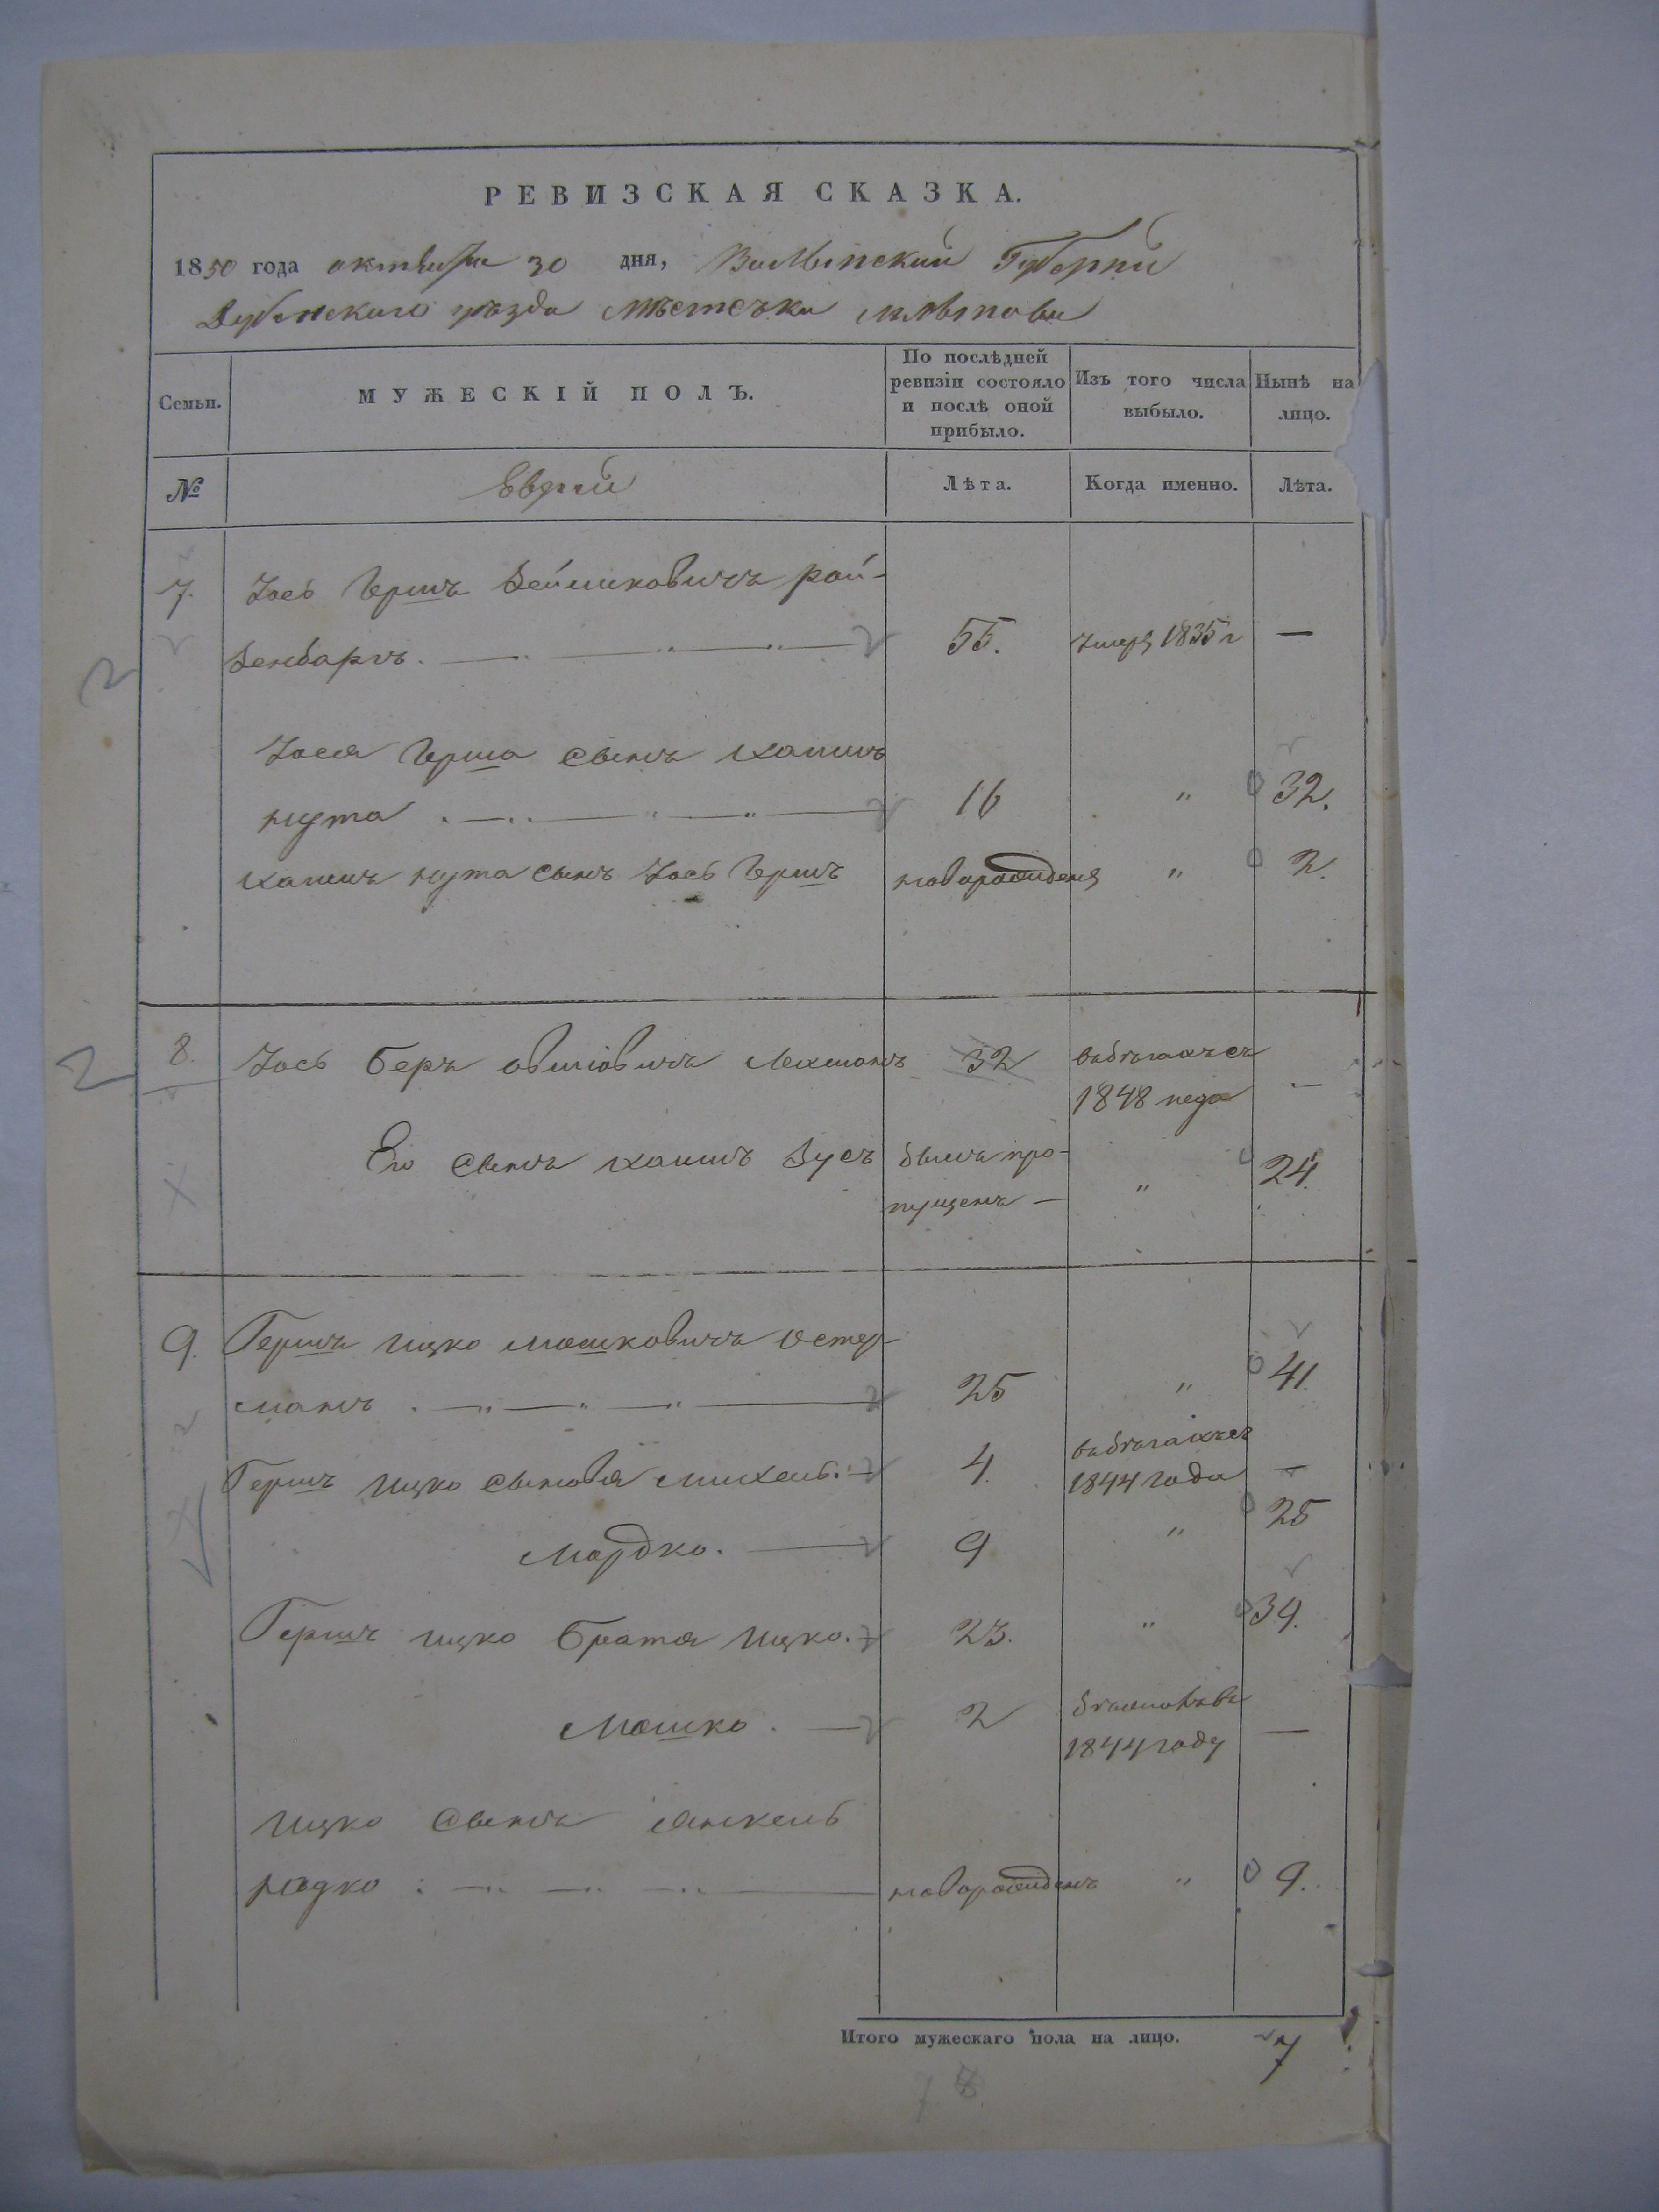 РЕВИЗСКАЯ СКАЗКА.
1850 года октября 30 дня, Волынской Губерніи
Дубенскаго уѣзда мѣстечка Млынова
Семьи.
МУЖЕСКІЙ ПОЛЪ.
По послѣдней ревизіи состояло и послѣ оной прибыло.
Изъ того числа выбыло.
Нынѣ на лицо.
№
Евреи
Лѣта.
Когда именно.
Лѣта.
7. Іось Гершъ Зейликовичъ рой-
зенбаргъ. 55. умеръ 1835 г —
Іося Герша сынъ Хаимъ
нута 16 " 32.
Хаимъ нута сынъ Іось Гершъ новорожденъ " 2.
8. Іось Беръ 32
1848 года —
Его сынъ Хаимъ Зусь былъ про-
пущенъ — " 24.
9. Гершъ Ицко Мошковичъ Остер-
манъ 25 " 41.
Гершъ Ицко сыновья Михель. 4. 1844 года —
Мордко. 9 " 25
Гершъ Ицко братья Ицко. 23. " 39.
Мошко. 2
1844 году —
Ицко сынъ Янкель
новорожденъ " 9.
Итого мужескаго пола на лицо. 7
7 8